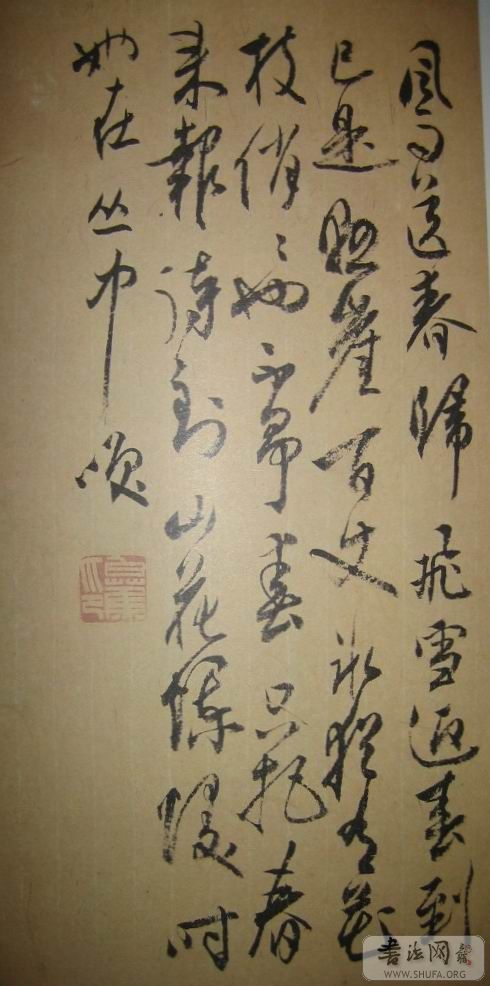 風雨送春歸飛雪迎春到
已是懸崖百丈冰猶有花
枝俏〻也不争春只把春
来報待到山花爛漫时
她在丛中咲
書法网
WWW.SHUFA.ORG